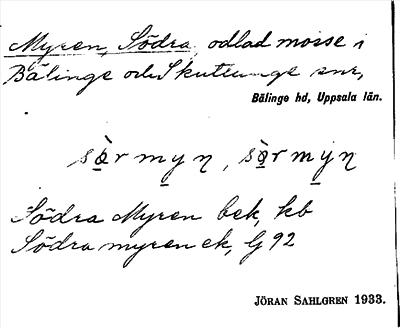 Myren, Södra, odlad mosse i
Bälinge och Skuttunge snr,
Bälinge hd, Uppsala län.
sọ̀r my̠ṇ, sọ̀r my̠ṇ
Södra Myren bek, kb
Södra myren ek, G 92
JÖRAN SAHLGREN 1933.